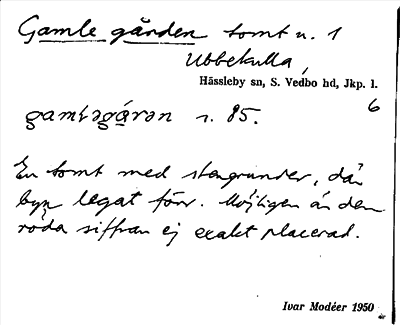 Gamle gården tomt u. 1
Ubbekulla,
Hässleby sn, S. Vedbo hd, Jkp. l.
6
s. 85.
En tomt med stengrunder, där
byn legat förr. Möjligen är den
röda siffran ej exakt placerad.
Ivar Modéer 1950